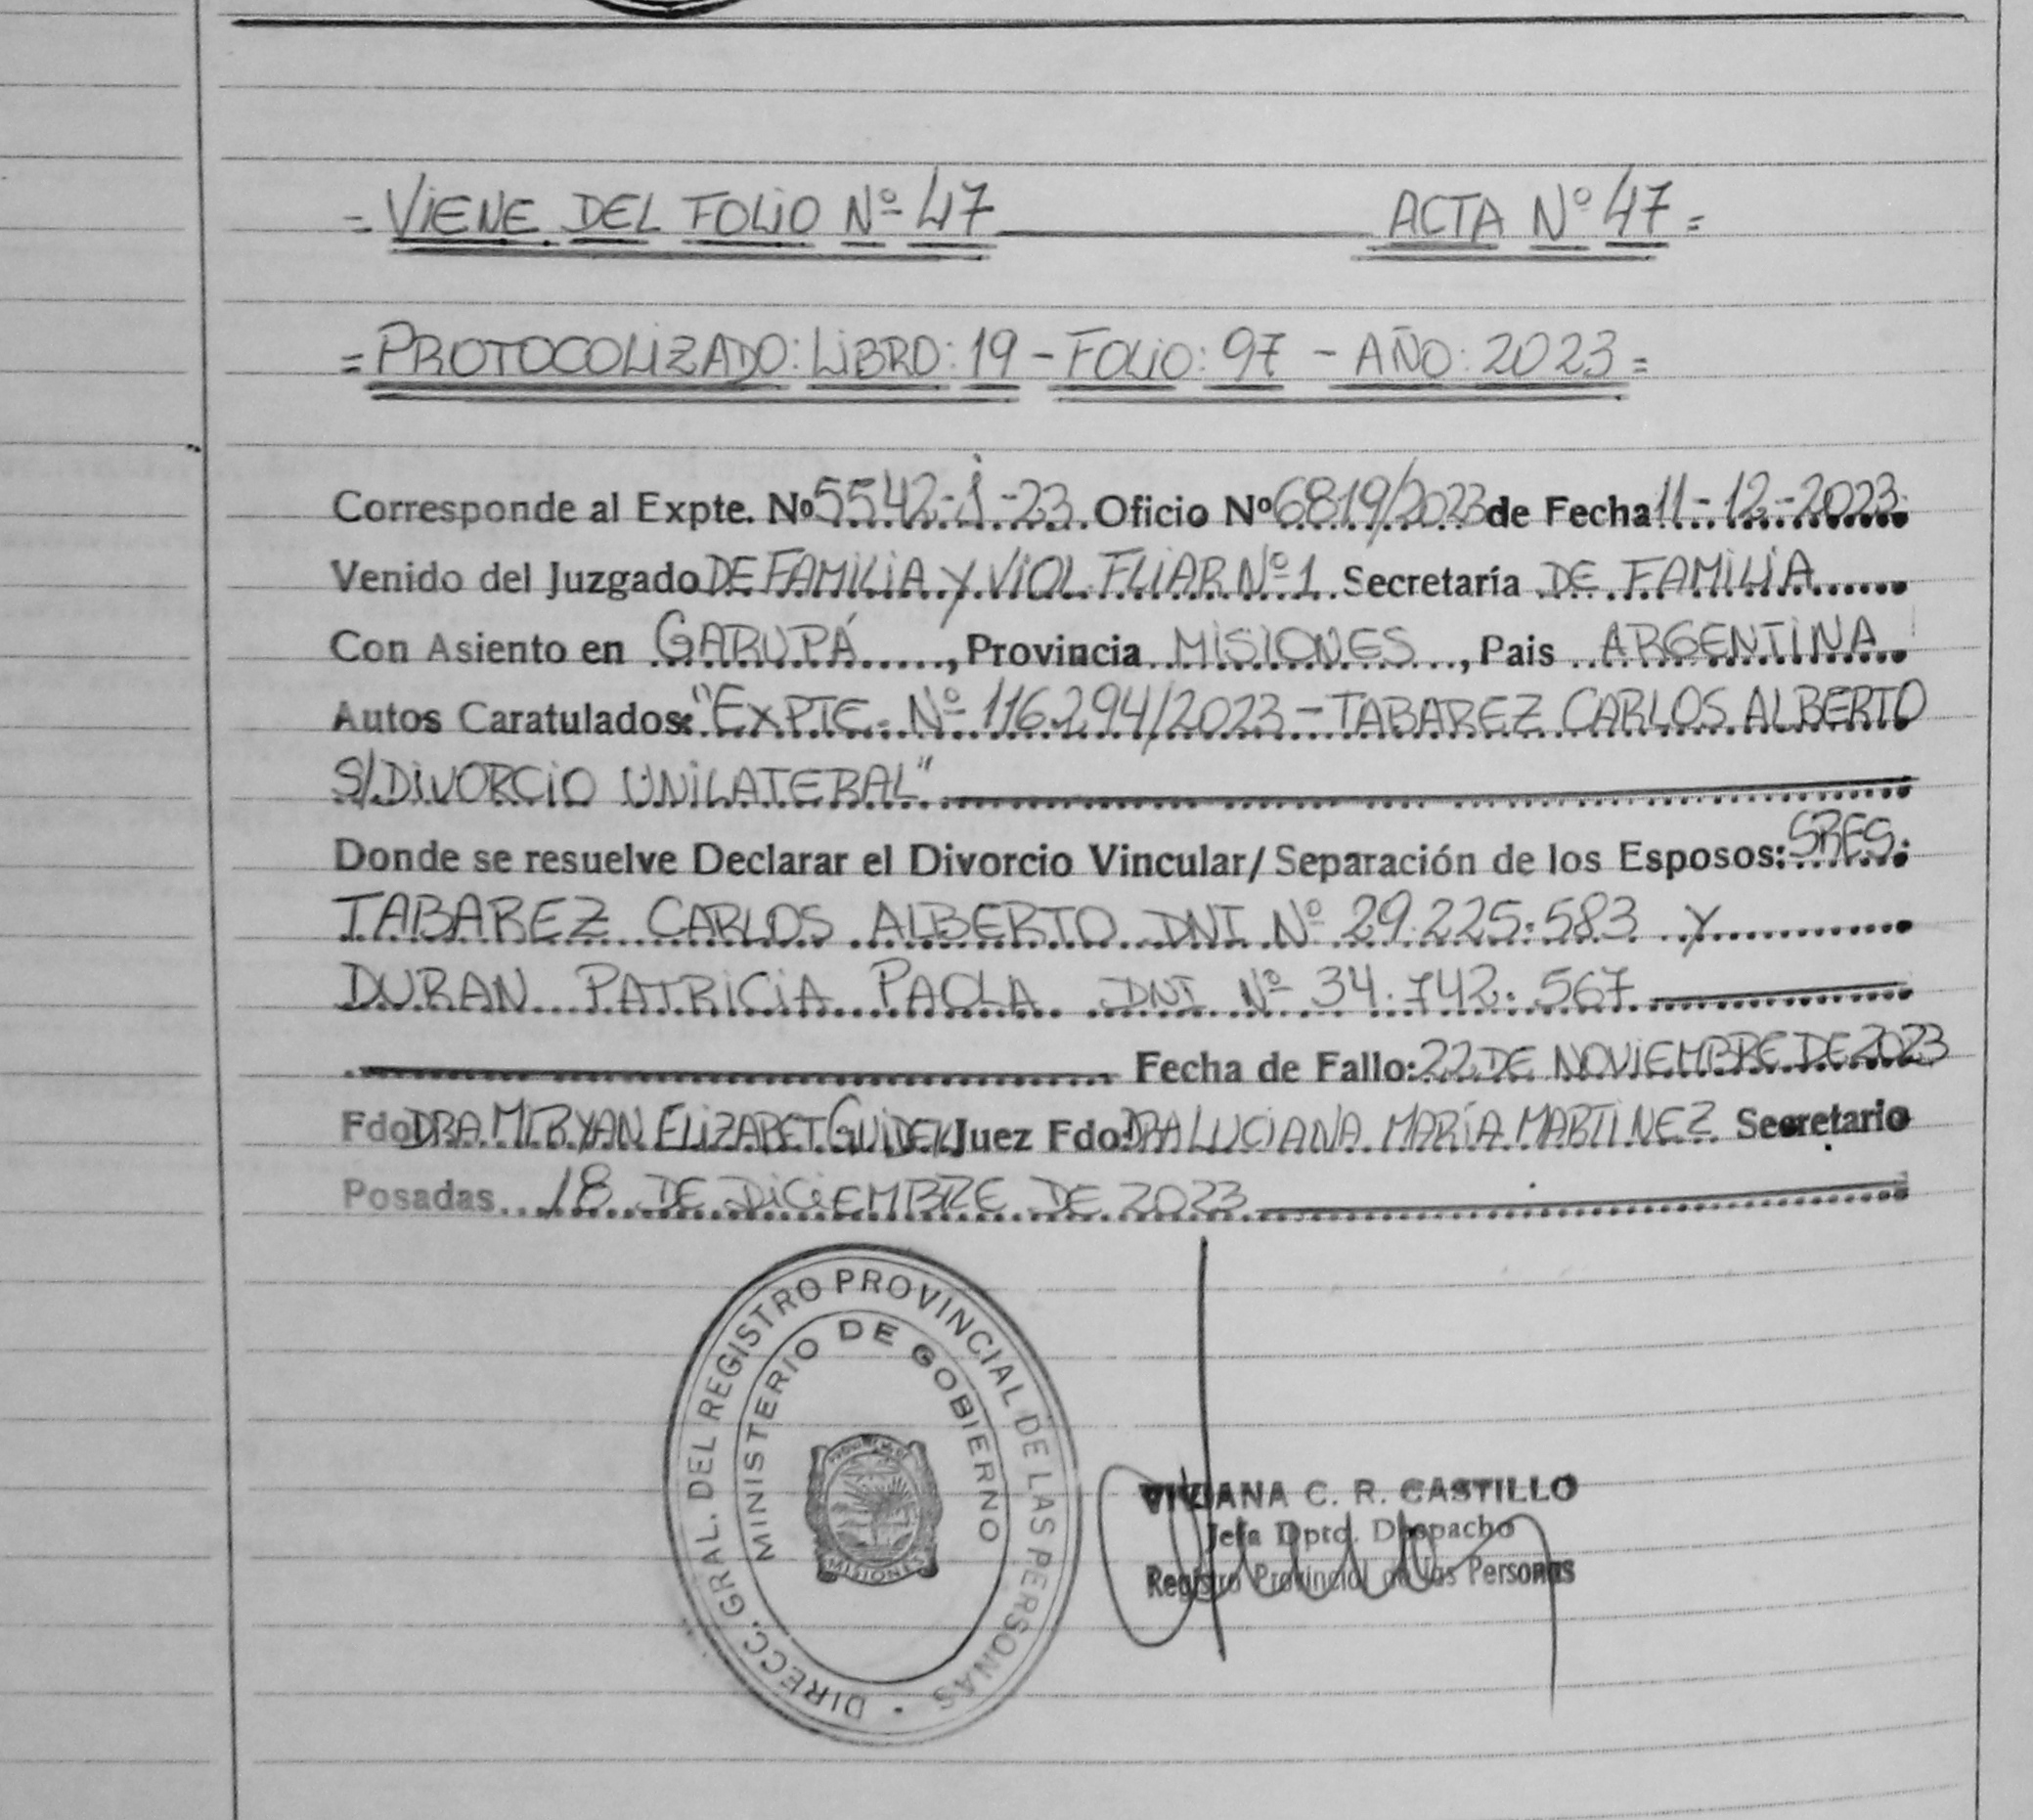 = VIENE DEL FOLIO Nº 47 ACTA Nº 47 =
= PROTOCOLIZADO: LIBRO: 19 - FOLIO: 97 - AÑO: 2023 =
Corresponde al Expte. Nº 5542-J-23. Oficio Nº 6819/2023 de Fecha 11-12-2023
Venido del Juzgado DE FAMILIA Y VIOL. FLIAR Nº 1 Secretaría DE FAMILIA
Con Asiento en GARUPÁ, Provincia MISIONES, Pais ARGENTINA
Autos Caratulados: "EXPTE. Nº 116.294/2023 - TABAREZ CARLOS ALBERTO
S/DIVORCIO UNILATERAL"
Donde se resuelve Declarar el Divorcio Vincular/ Separación de los Esposos: SRES.
TABAREZ CARLOS ALBERTO DNI Nº 29.225.583 Y
DURAN PATRICIA PAOLA DNI Nº 34.742.567
Fecha de Fallo: 22 DE NOVIEMBRE DE 2023
Fdo DRA. MIRYAN ELIZABET Juez Fdo: DRA LUCIANA MARÍA MARTINEZ Secretario
Posadas 18 DE DICIEMBRE DE 2023
DIRECC. GRAL. DEL REGISTRO PROVINCIAL DE LAS PERSONAS
MINISTERIO DE GOBIERNO
MISIONES
VIVIANA C. R. CASTILLO
Jefa Dpto. Despacho
Registro Provincial de las Personas